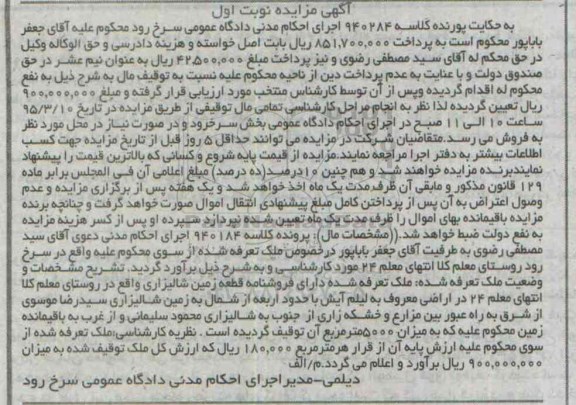 آگهی مزایده نوبت اول
به حکایت پورنده کلاسه ۹۴۰۲۸۴ اجرای احکام مدنی دادگاه عمومی سرخ رود محکوم علیه آقای جعفر
باباپور محکوم است به پرداخت ۸۵۱,۷۰۰,۰۰۰ ریال بابت اصل خواسته و هزینه دادرسی و حق الوکاله وکیل
در حق محکم له آقای سید مصطفی رضوی و نیز پرداخت مبلغ ۴۲,۵۰۰,۰۰۰ ریال به عنوان نیم عشر در حق
صندوق دولت و با عنایت به عدم پرداخت دین از ناحیه محکوم علیه نسبت به توقیف مال به شرح ذیل به نفع
محکوم له اقدام گردیده وپس از آن توسط کارشناس منتخب مورد ارزیابی قرار گرفته و مبلغ ۹۰۰,۰۰۰,۰۰۰
ریال تعیین گردیده لذا نظر به انجام مراحل کارشناسی تمامی مال توقیفی از طریق مزایده در تاریخ ۹۵/۳/۱۰
ساعت ۱۰ الی ۱۱ صبح در اجرای احکام دادگاه عمومی بخش سرخرود و در صورت نیاز در محل مورد نظر
به فروش می رسد.متقاضیان شرکت در مزایده می توانند حداقل ۵ روز قبل از تاریخ مزایده جهت کسب
اطلاعات بیشتر به دفتر اجرا مراجعه نمایند.مزایده از قیمت پایه شروع و کسانی که بالاترین قیمت را پیشنهاد
نمایندبرنده مزایده خواهند شد و هم چنین ۱۰درصد(ده درصد) مبلغ اعلامی آن فی المجلس برابر ماده
۱۲۹ قانون مذکور و مابقی آن ظرف مدت یک ماه اخذ خواهد شد و یک هفته پس از برگزاری مزایده و عدم
وصول اعتراض به آن پس از پرداختن کامل مبلغ پیشنهادی انتقال اموال صورت خواهد گرفت و چنانچه برنده
مزایده باقیمانده بهای اموال را ظرف مدت یک ماه تعیین شده نپردازد سپرده او پس از کسر هزینه مزایده
به نفع دولت ضبط خواهد شد.((مشخصات مال): پرونده کلاسه ۹۴۰۱۸۴ اجرای احکام مدنی دعوی آقای سید
مصطفی رضوی به طرفیت آقای جعفر باباپور درخصوص ملک تعرفه شده از سوی محکوم علیه واقع در سرخ
رود روستای معلم کلا انتهای معلم ۲۴ مورد کارشناسی و به شرح ذیل برآورد گردید. تشریح مشخصات و
وضعیت ملک تعرفه شده: ملک تعرفه شده دارای فروشنامه قطعه زمین شالیزاری واقع در روستای معلم کلا
انتهای معلم ۲۴ در اراضی معروف به لیلم آیش با حدود اربعه از شمال به زمین شالیزاری سیدرضا موسوی
از شرق به راه عبور بین مزارع و خشکه زاری از جنوب به شالیزاری محمود سلیمانی و از غرب به باقیمانده
زمین محکوم علیه که به میزان ۵۰۰۰مترمربع آن توقیف گردیده است . نظریه کارشناسی:ملک تعرفه شده از
سوی محکوم علیه ارزش پایه آن از قرار هر مترمربع ۱۸۰,۰۰۰ ریال که ارزش کل ملک توقیف شده به میزان
۹۰۰,۰۰۰,۰۰۰ ریال برآورد و اعلام می گردد.م/الف
دیلمی-مدیراجرای احکام مدنی دادگاه عمومی سرخ رود